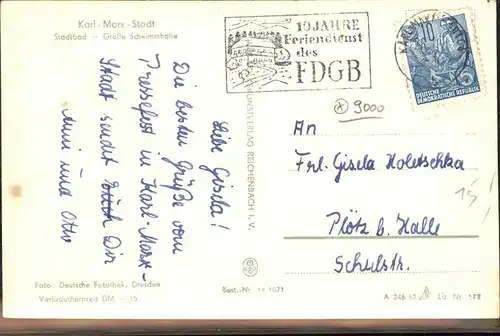 Karl-Marx-Stadt
Stadtbad — Große Schwimmhalle
10 JAHRE
Feriendienst
des
FDGB
10
DEUTSCHE
DEMOKRATISCHE REPUBLIK
9000
Liebe Gisela!
Die besten Grüße vom
Pressefest in Karl-Marx-
Stadt sendet Euch Dir
und Otto
VERLAG REICHENBACH I. V.
An
Frl. Gisela Holetschka
Plötz b. Halle
Schulstr.
15!
Foto: Deutsche Fotothek, Dresden
Verbraucherpreis DM —.15
Best.-Nr. 14 1071
A 246/57
Liz. Nr. 172